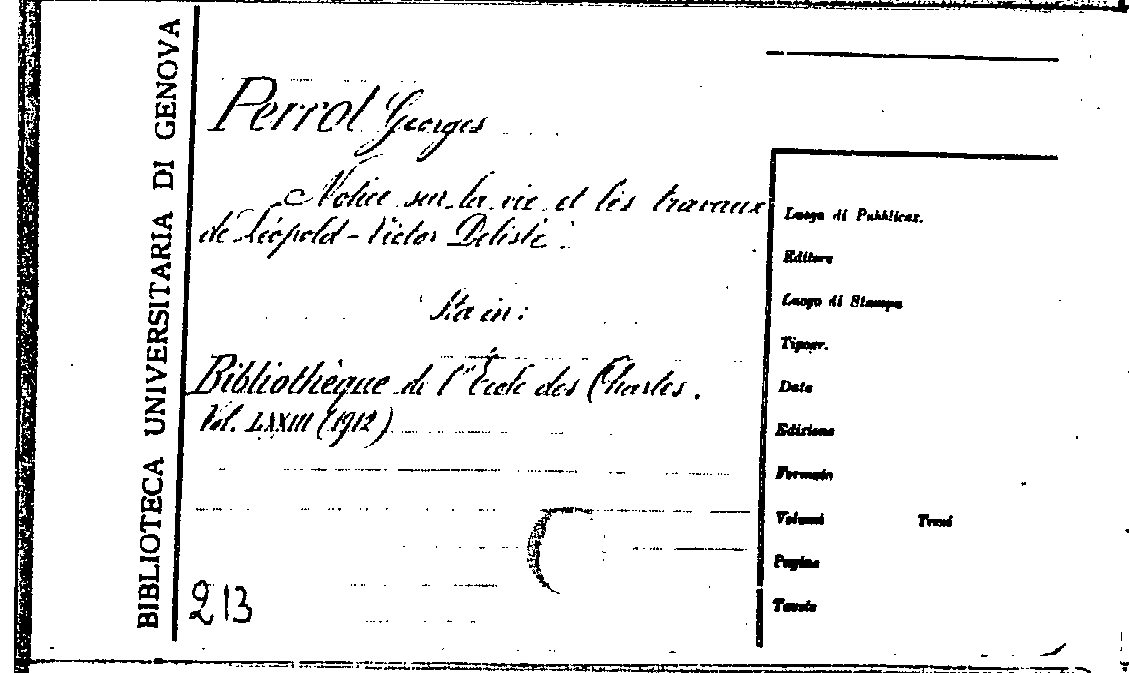 BIBLIOTECA UNIVERSITARIA DI GENOVA
Perrot Georges
Notice sur la vie et les travaux
de Léopold-Victor Delisle.
Sta in:
Bibliothèque de l'École des Chartes.
Vol. LXXIII (1912)
213
Luogo di Pubblicaz.
Editore
Luogo di Stampa
Tipogr.
Data
Edizione
Formato
Volumi Tomi
Pagine
Tavole